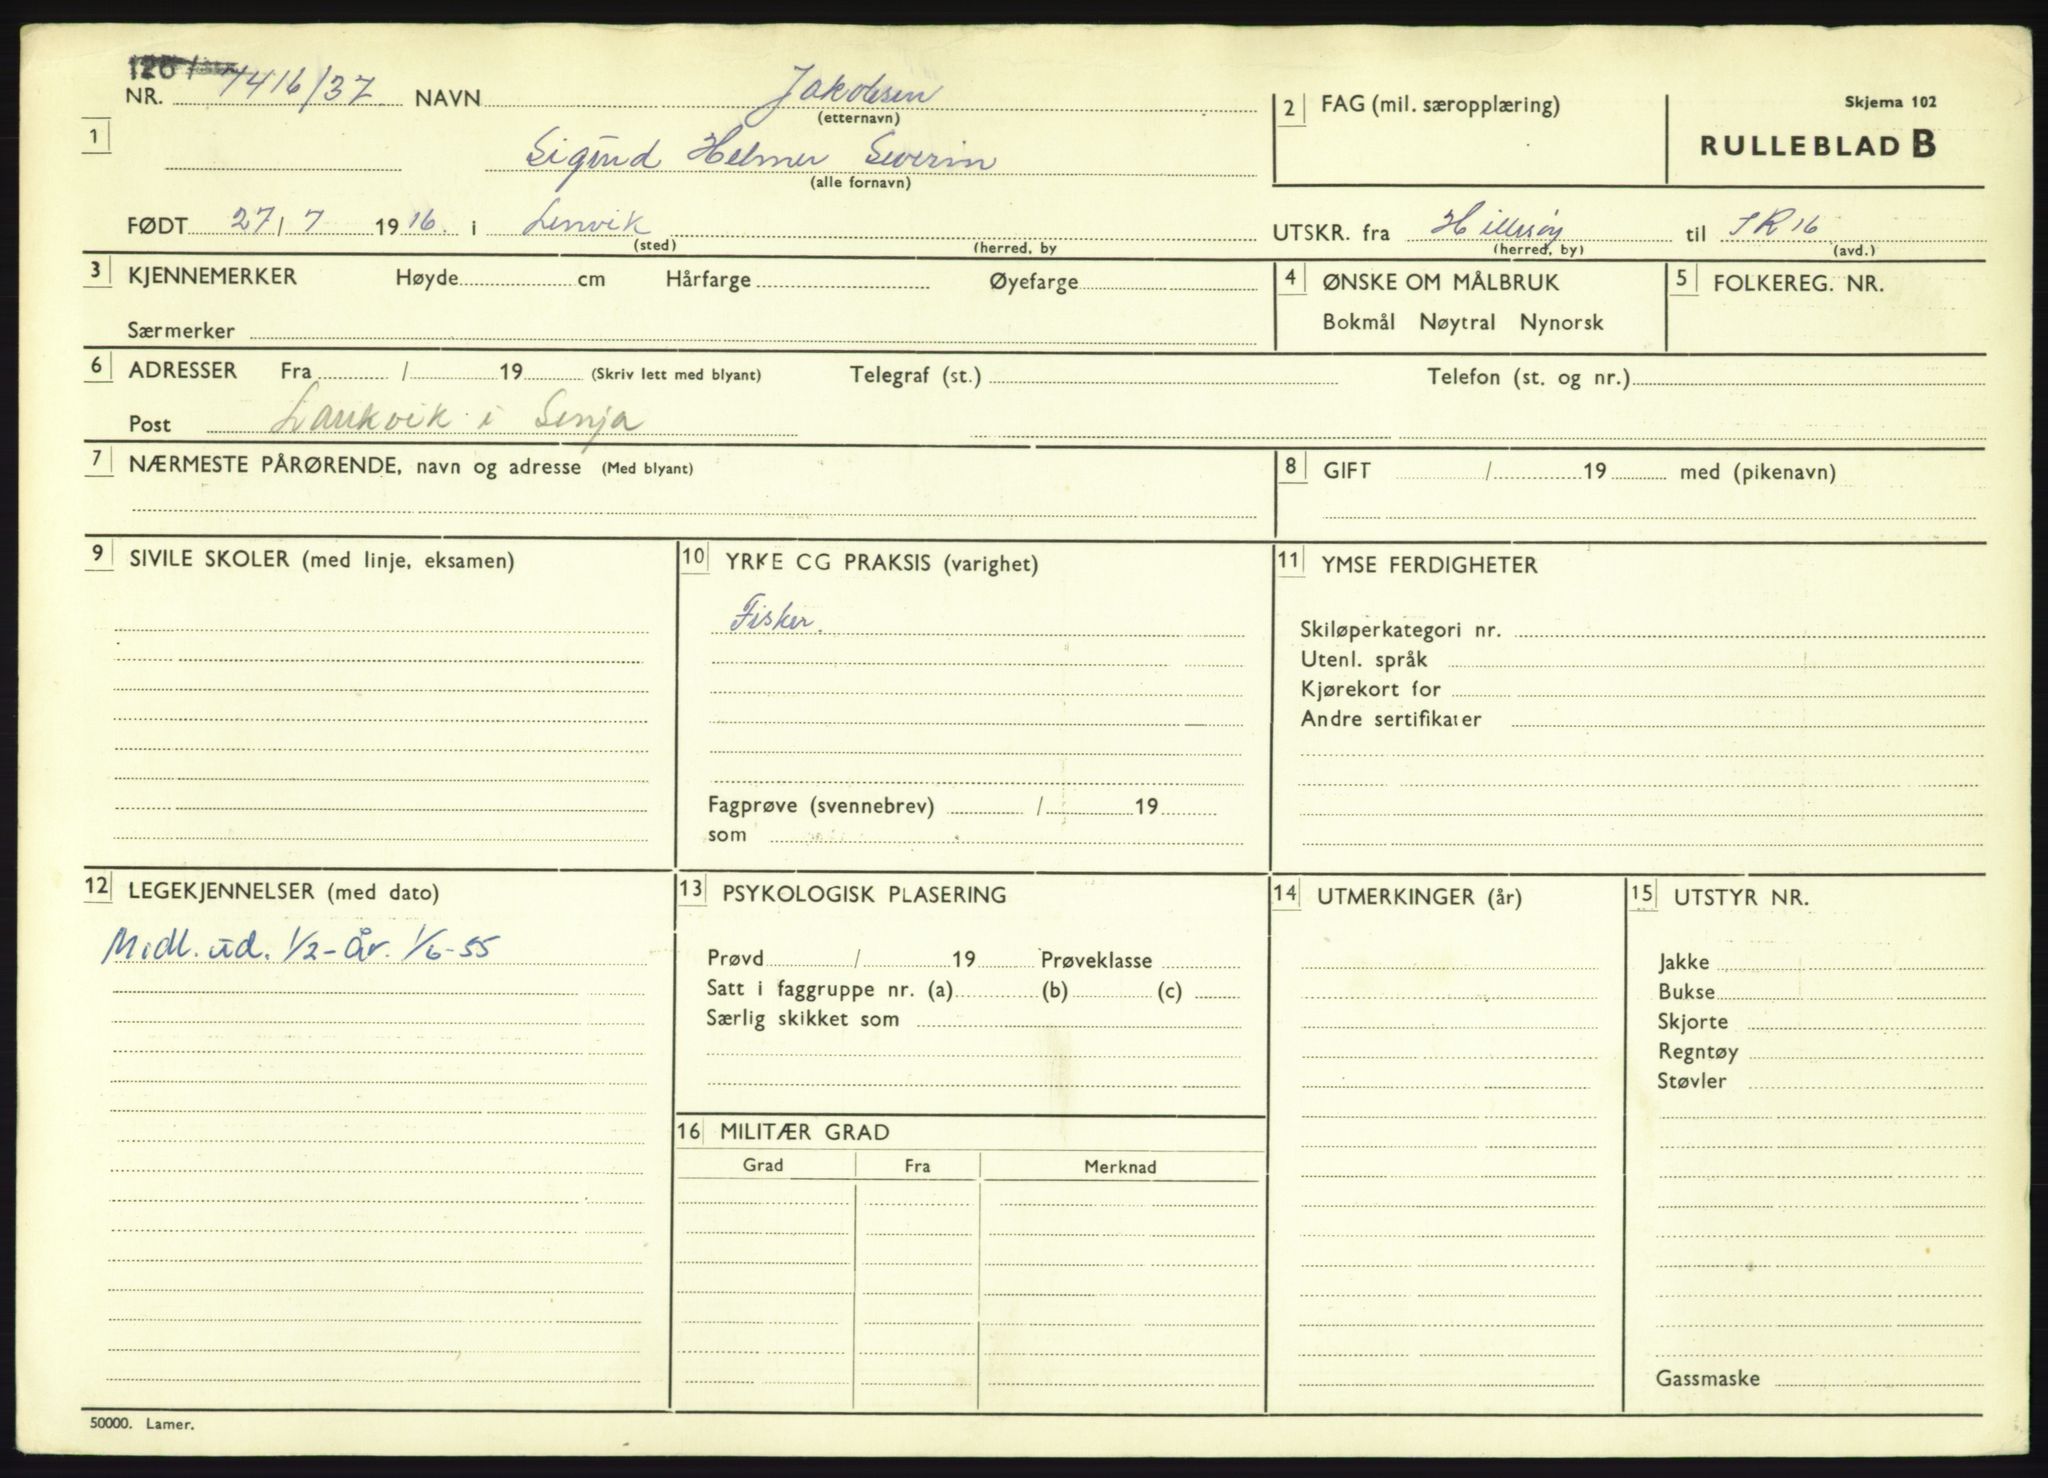 NR. 1416/37 NAVN Jakobsen
(etternavn)
2 FAG (mil. særopplæring)
Skjema 102
RULLEBLAD B
1
Sigurd Helmer Severin
(alle fornavn)
FØDT 27/7 1916. i Lenvik
(sted) (herred, by
UTSKR. fra Hillesøy til IR 16
(herred, by) (avd.)
3 KJENNEMERKER Høyde cm Hårfarge Øyefarge
Særmerker
4 ØNSKE OM MÅLBRUK
Bokmål Nøytral Nynorsk
5 FOLKEREG. NR.
6 ADRESSER Fra / 19 (Skriv lett med blyant) Telegraf (st.) Telefon (st. og nr.)
Post Laukvik i Senja
7 NÆRMESTE PÅRØRENDE, navn og adresse (Med blyant)
8 GIFT / 19 med (pikenavn)
9 SIVILE SKOLER (med linje, eksamen)
10 YRKE CG PRAKSIS (varighet)
Fisker.
Fagprøve (svennebrev) / 19
som
11 YMSE FERDIGHETER
Skiløperkategori nr.
Utenl. språk
Kjørekort for
Andre sertifikater
12 LEGEKJENNELSER (med dato)
Midl. ud. 1/2-år. 1/6-55
13 PSYKOLOGISK PLASERING
Prøvd / 19 Prøveklasse
Satt i faggruppe nr. (a) (b) (c)
Særlig skikket som
14 UTMERKINGER (år)
15 UTSTYR NR.
Jakke
Bukse
Skjorte
Regntøy
Støvler
Gassmaske
16 MILITÆR GRAD
Grad Fra Merknad
50000. Lamer.